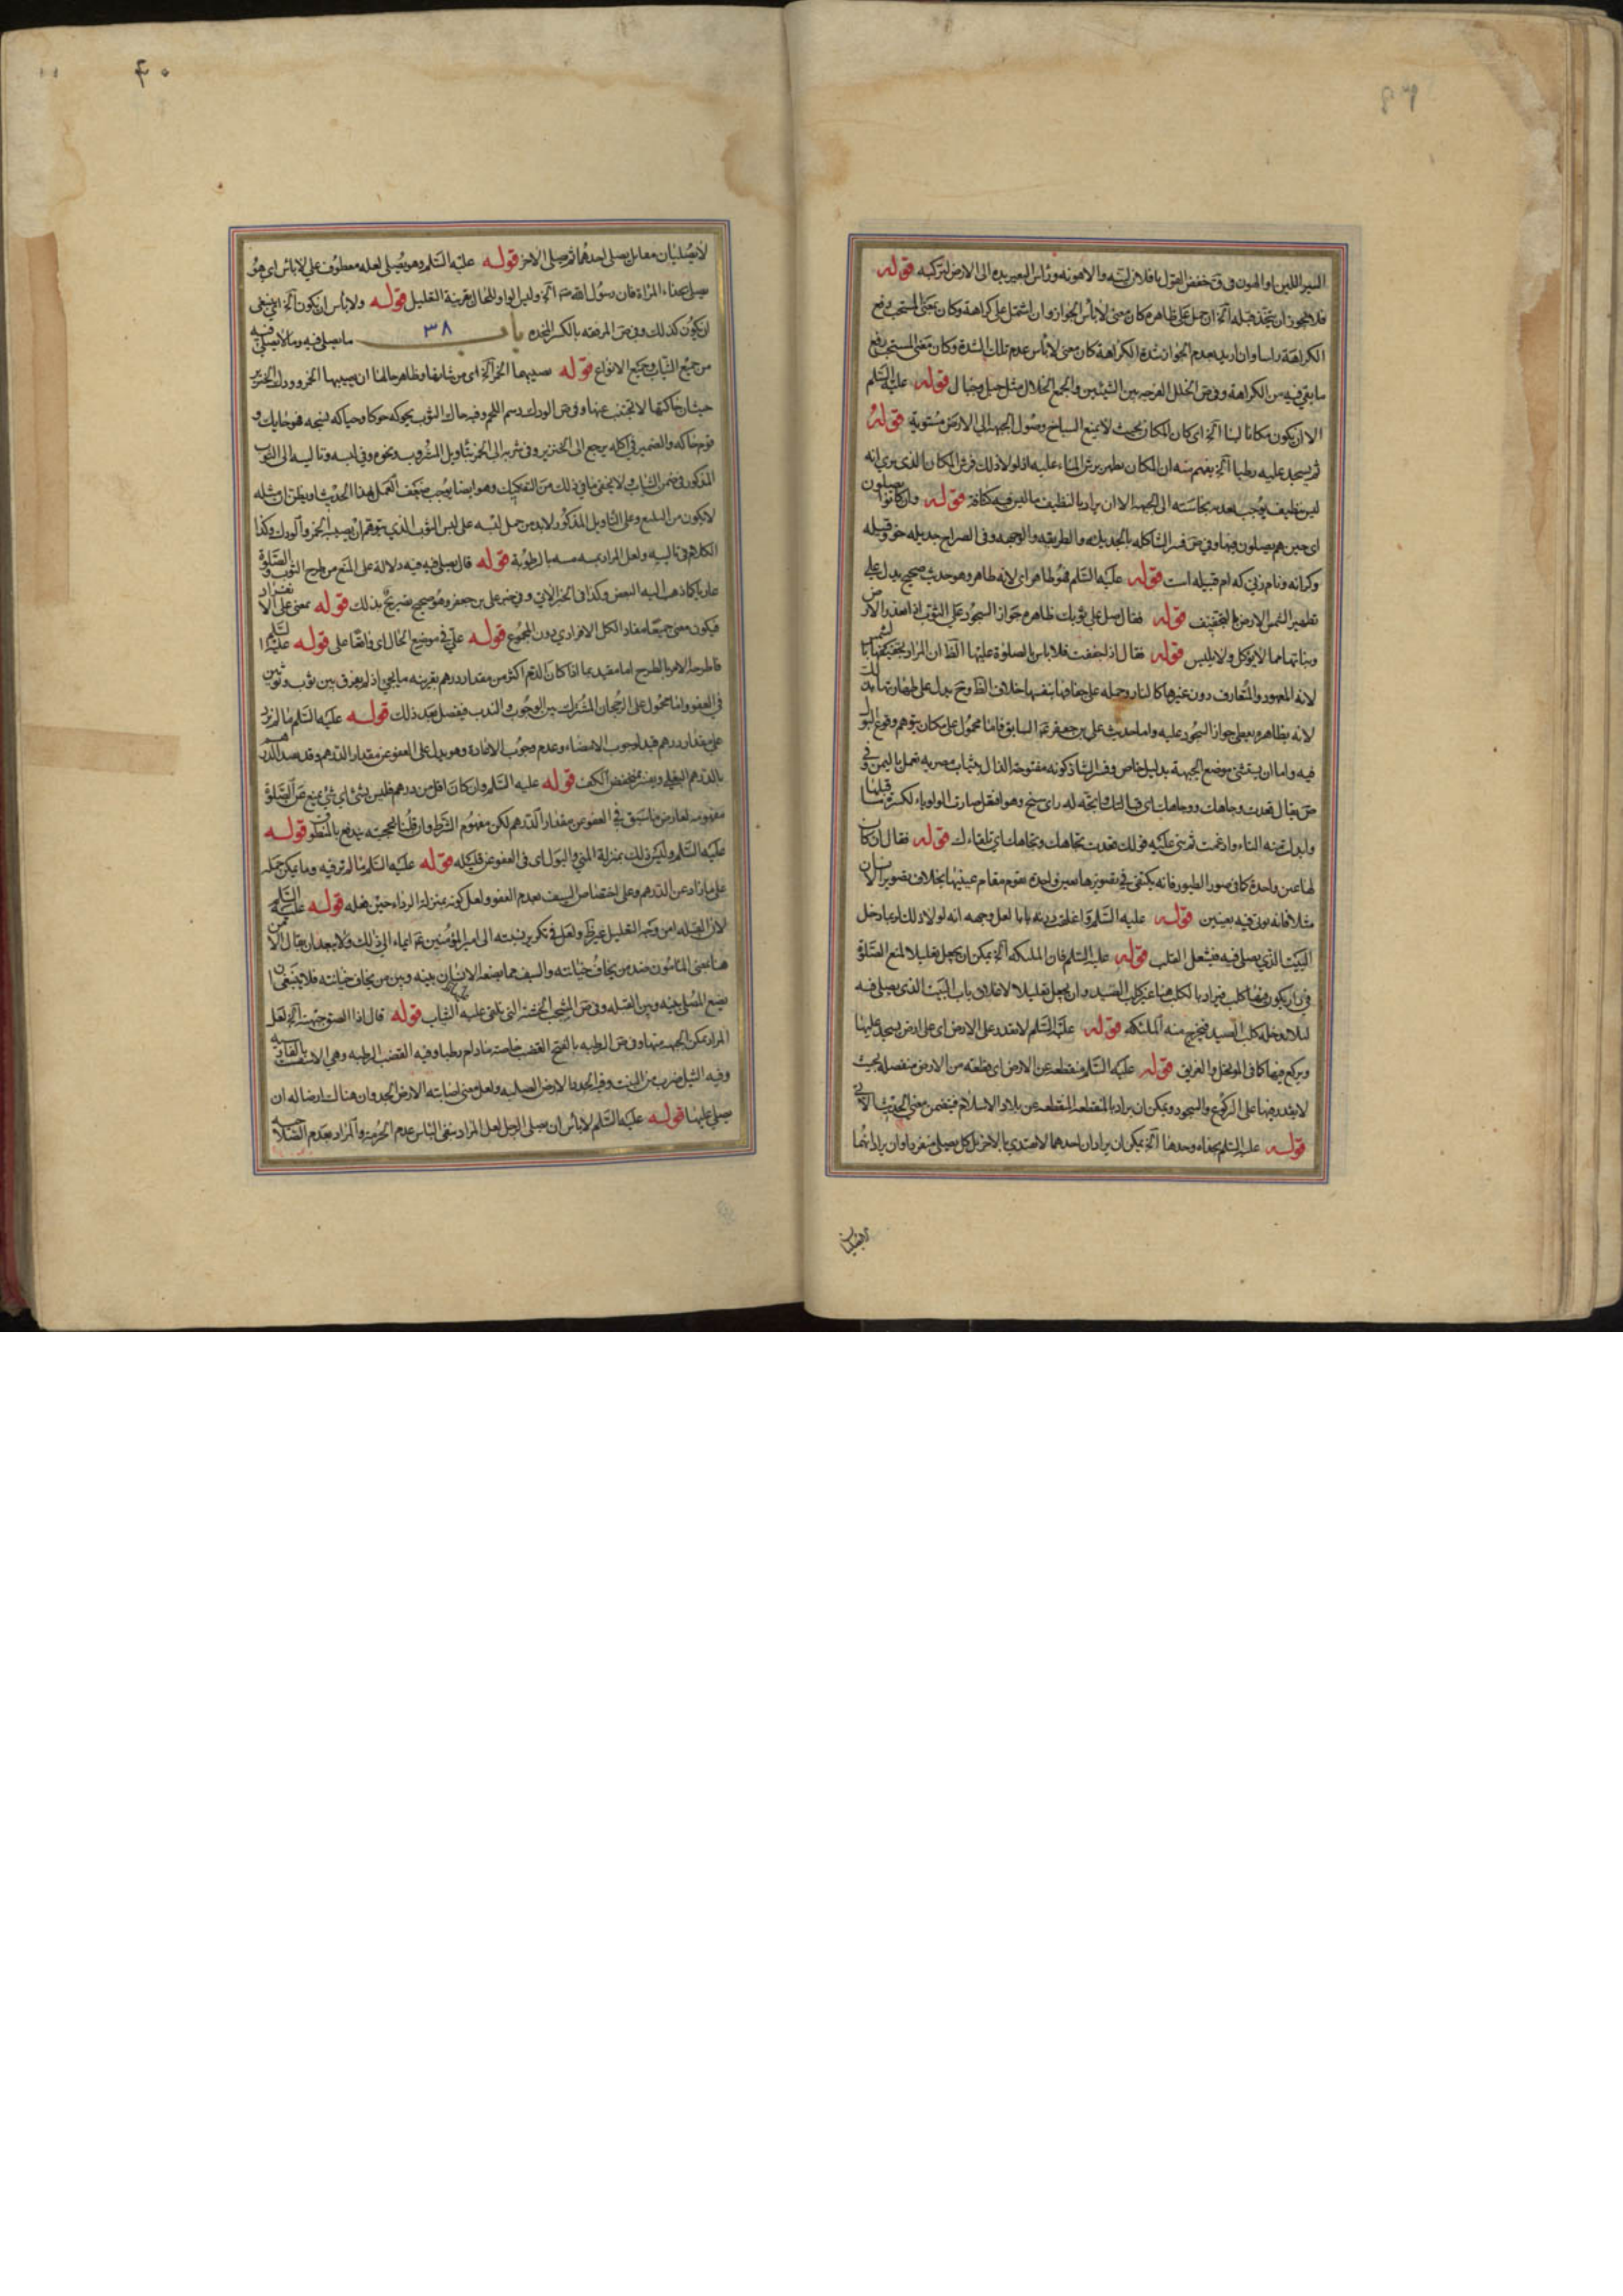 السير اللين او الهون وفي ق خفض القول يا فلان لينه والامر هونه وراس البعير يده الى الارض ليركبه قوله
فلا يجوز ان يتخذ قبله آلخ ان حمل على ظاهره كان معنى لا بأس الجواز وان اشتمل على كراهة وكان بمعنى المستحب يرفع
الكراهة راسا وان اريد بعدم الجواز شدة الكراهة كان معنى لا بأس عدم تلك الشدة وكان معنى المستحب رفع
ما بقي فيه من الكراهة وفي ص الخلل الفرجه بين الشيئين والجمع الخلال مثل جبل وجبال قوله عليه السلم
الا ان يكون مكانا لينا آلخ اى كان المكان بحيث لا يمنع السباخ وصول الجبهة الى الارض مستوية قوله
ثم يسجد عليه رطبا آلخ يفهم منه ان المكان يطهر برش الماء عليه اذ لولا ذلك فرش المكان الذى يرى انه
ليس بنظيف يوجب تعديه نجاسته الى الجبهة الا ان يراد بالنظيف ما ليس فيه كثافة قوله وان كانوا يصلون
اى حين هم يصلون فيها وفي ص فسر الشاكله بالجديله والطريقه والوجهه وفى الصراح جديله حق وقبيله
وكرانه ونام زنى كه ام قبيله است قوله عليه السلم فهو طاهر اى لانه طاهر وهو حديث صحيح يدل على
تطهير الشمس الارض بالتجفيف قوله فقال صل على ثوبك ظاهره جواز السجود على الثوب اذا تعذر الارض
ونباتها مما لا يؤكل ولا يلبس قوله فقال اذا جففت فلا باس بالصلوة عليها الظ ان المراد تجفيفها بالشمس
لانه المعهود والمتعارف دون غيرها كالنار وحمله على جفافها بنفسها خلاف الظ وح يدل على طهارتها بذلك
لانه بظاهره يعطى جواز السجود عليه واما حديث على بن جعفر ع السابق فاما محمول على مكان يتوهم وقوع البول
فيه واما ان يستثنى موضع الجبهة بدليل خاص وفسر الشاذكونه مفتوحة الذال بثياب مصريه تعمل باليمن وفي
ص يقال قعدت وجاهك ووجاهك اى قبالتك واتجه له راى سنح وهو افتعل صارت الواو ياء لكسرة ما قبلها
وابدلت منه التاء وادغمت ثم بنى عليه قولك قعدت تجاهك وتجاهك اي تلقاءك قوله فقال ان كان
لها عين واحدة كما فى صور الطيور فانه يكتفى في تصويرها بعين واحدة تقوم مقام عينيها بخلاف تصوير الانسان
مثلا فانه يوتى فيه بعينين قوله عليه السلم واغلق دونه بابا لعل وجهه انه لولا ذلك لربما دخل
البيت الذى يصلى فيه فيشغل القلب قوله عليه السلم فان الملئكه آلخ يمكن ان يجعل تعليلا لمنع الصلوة
في دار يكون فيها كلب فيراد بالكلب هنا غير كلب الصيد وان يجعل تعليلا لاغلاق باب البيت الذى يصلى فيه
لئلا يدخله كلب الصيد فيخرج منه الملئكه قوله عليه السلم لا يقدر على الارض اى على ارض يسجد عليها
ويركع فيها كما فى الموتحل والغريق قوله عليه السلم منقطعه عن الارض اى قطعه من الارض منفصله بحيث
لا يقدر فيها على الركوع والسجود ويمكن ان يراد بالمنقطعه المنقطعه عن بلاد الاسلام فيتضمن معنى الحديث الاتى
قوله عليه السلم بحذاء وحدها آلخ يمكن ان يراد ان احدهما لا يقتدي بالاخر بل كل يصلى منفردا وان يراد انهما
لا يصليان
لا يصليان معا بل يصلى احدهما ثم يصلى الاخر قوله عليه السلم وهو يصلى لعله معطوف على لا بأس اى هو
يصلى بحذاء المراة فان رسول الله ص آلخ وليس الواو للحال بقرينة التعليل قوله ولا بأس ان يكون آلخ اى ينبغى
ان يكون كذلك وفى ص المرفقه بالكسر المخده باب ٣٨ ما يصلى فيه وما لا يصلى فيه
من جميع الثياب وجميع الانواع قوله يصيبها الخمر آلخ اى من شانها وظاهر حالها ان يصيبها الخمر وودك الخنزير
حيث ان حاكتها لا تجتنب عنها وفى ص الودك دسم اللحم وفيه حاك الثوب يحوكه حوكا وحياكه لنسجه فهو حايك و
قوم حاكه والضمير فى اكله يرجع الى الخنزير وفى شربه الى الخمر بتاويل المشروب ونحوه وفي لبسه وتاليه الى الثوب
المذكور فى ضمن الثياب ولا يخفى ما فى ذلك من التفكيك وهو ايضا يوجب ضعف العمل بهذا الحديث اويظن ان مثله
لا يكون من البليغ وعلى التاويل المذكور لا بد من حمل لبسه على لبس الثوب الذى يتوهم ان يصيبه الخمر والودك وكذا
الكلام فى تاليه ولعل المراد بمسه مسه بالرطوبة قوله قال يصلى فيه فيه دلالة على المنع من طرح الثوب والصلوة
عاريا كما ذهب اليه البعض وكذا فى الخبر الاتى وفى خبر على بن جعفر وهو صحيح تصريح بذلك قوله بمعنى على الانفراد
فيكون معنى جميعا مفاد الكل الافرادي دون المجموع قوله على فى موضع الحال اى واقفا على قوله عليه السلم
فاطرحه الامر بالطرح اما مقيد بما اذا كان الدم اكثر من مقدار درهم بقرينه ما يجئ اذ لم يفرق بين ثوب وثوبين
فى العفو واما محمول على الرجحان المشترك بين الوجوب والندب فيفصل بعد ذلك قوله عليه السلم ما لم يزد
على مقدار درهم قيد لوجوب الامضاء وعدم وجوب الاعادة وهو يدل على العفو عن مقدار الدرهم وقد يقيد الدرهم
بالدرهم البغلى ويفسر بمخفض الكف قوله عليه السلم وان كان اقل من درهم فليس بشئ اى شئ يمنع عن الصلوة
مفهومه يعارض ما سبق فى العفو عن مقدار الدرهم لكن مفهوم الشرط وان قلنا بحجيته يندفع بالمنطوق قوله
عليه السلم وليس ذلك بمنزلة المنى والبول اى فى العفو عن قليله قوله عليه السلم ما لم تر فيه دما يمكن حمله
على ما زاد عن الدرهم وعلى اختصاص السيف بعدم العفو ولعل كونه بمنزلة الرداء حين يصله قوله عليه السلم
لان القبله امن وجه التعليل غير ظ ولعل فى تكرير نسبته الى امير المؤمنين ع ايماء الى ذلك ولا يبعد ان يقال الامن
هنا بمعنى المامون ضد من يخاف خيانته والسيف مما يضعه الانسان بينه وبين من يخاف خيانته فلا ينبغى ان
يضع المصلى بينه وبين القبله وفى ص المشجب الخشبة التى تلقى عليه الثياب قوله قال اذا الصق جبهته آلخ لعل
المراد تمكن الجبهة منها وفى ص الرطبه بالفتح القضب خاصة ما دام رطبا وفيه القضب الرطبه وهى الاسفست بالفارسية
وفيه الثيل ضرب من النبت وفيه الجدد الارض الصلبه ولعل معنى اصابته الارض الجدد ان هنالك ارضا له ان
يصلى عليها قوله عليه السلم لا بأس ان يصلى الرجل لعل المراد بنفى البأس عدم الحرمة والمراد بعدم الصلاحيه